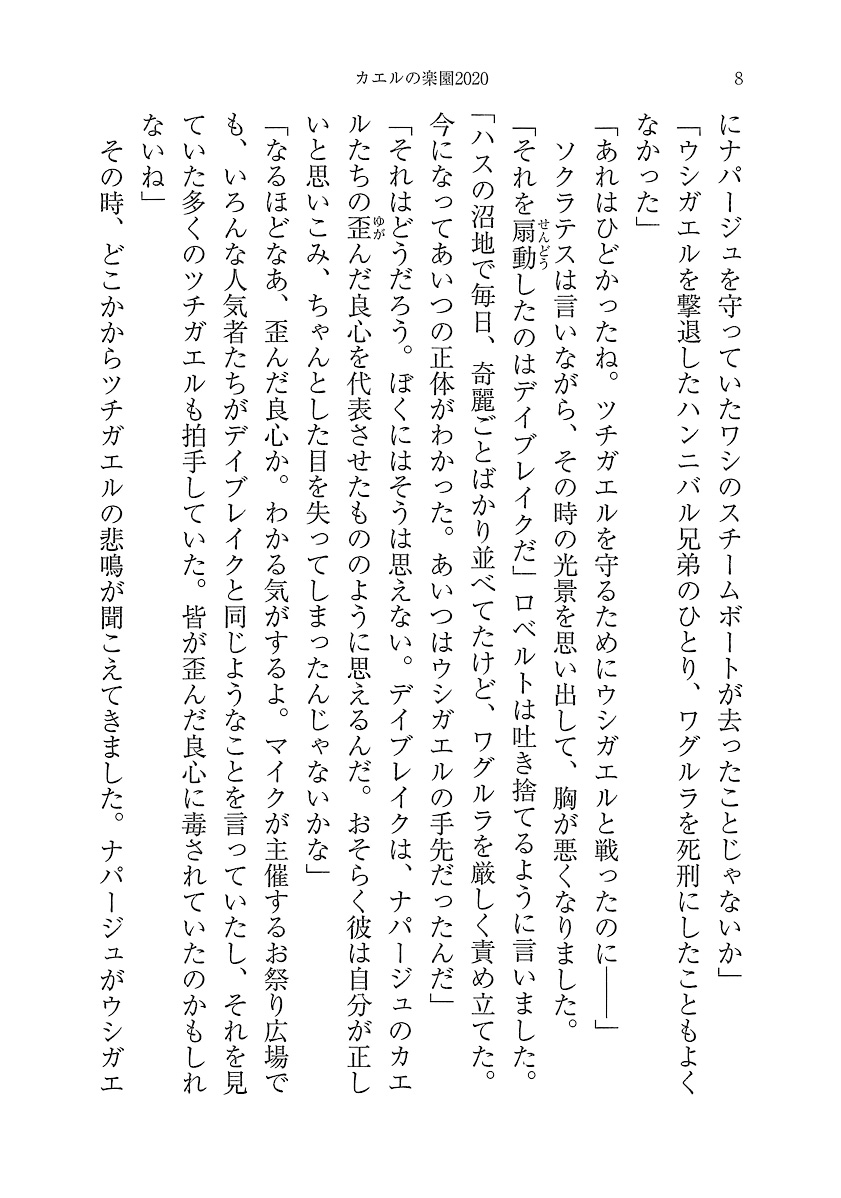 カエルの楽園2020
8
にナパージュを守っていたワシのスチームボートが去ったことじゃないか」
「ウシガエルを撃退したハンニバル兄弟のひとり、ワグルラを死刑にしたこともよく
なかった」
「あれはひどかったね。ツチガエルを守るためにウシガエルと戦ったのに――」
ソクラテスは言いながら、その時の光景を思い出して、胸が悪くなりました。
「それを扇動したのはデイブレイクだ」ロベルトは吐き捨てるように言いました。
せんどう
「ハスの沼地で毎日、奇麗ごとばかり並べてたけど、ワグルラを厳しく責め立てた。
今になってあいつの正体がわかった。あいつはウシガエルの手先だったんだ」
「それはどうだろう。ぼくにはそうは思えない。デイブレイクは、ナパージュのカエ
ルたちの歪んだ良心を代表させたもののように思えるんだ。おそらく彼は自分が正し
ゆが
いと思いこみ、ちゃんとした目を失ってしまったんじゃないかな」
「なるほどなあ、歪んだ良心か。わかる気がするよ。マイクが主催するお祭り広場で
も、いろんな人気者たちがデイブレイクと同じようなことを言っていたし、それを見
ていた多くのツチガエルも拍手していた。皆が歪んだ良心に毒されていたのかもしれ
ないね」
その時、どこかからツチガエルの悲鳴が聞こえてきました。ナパージュがウシガエ